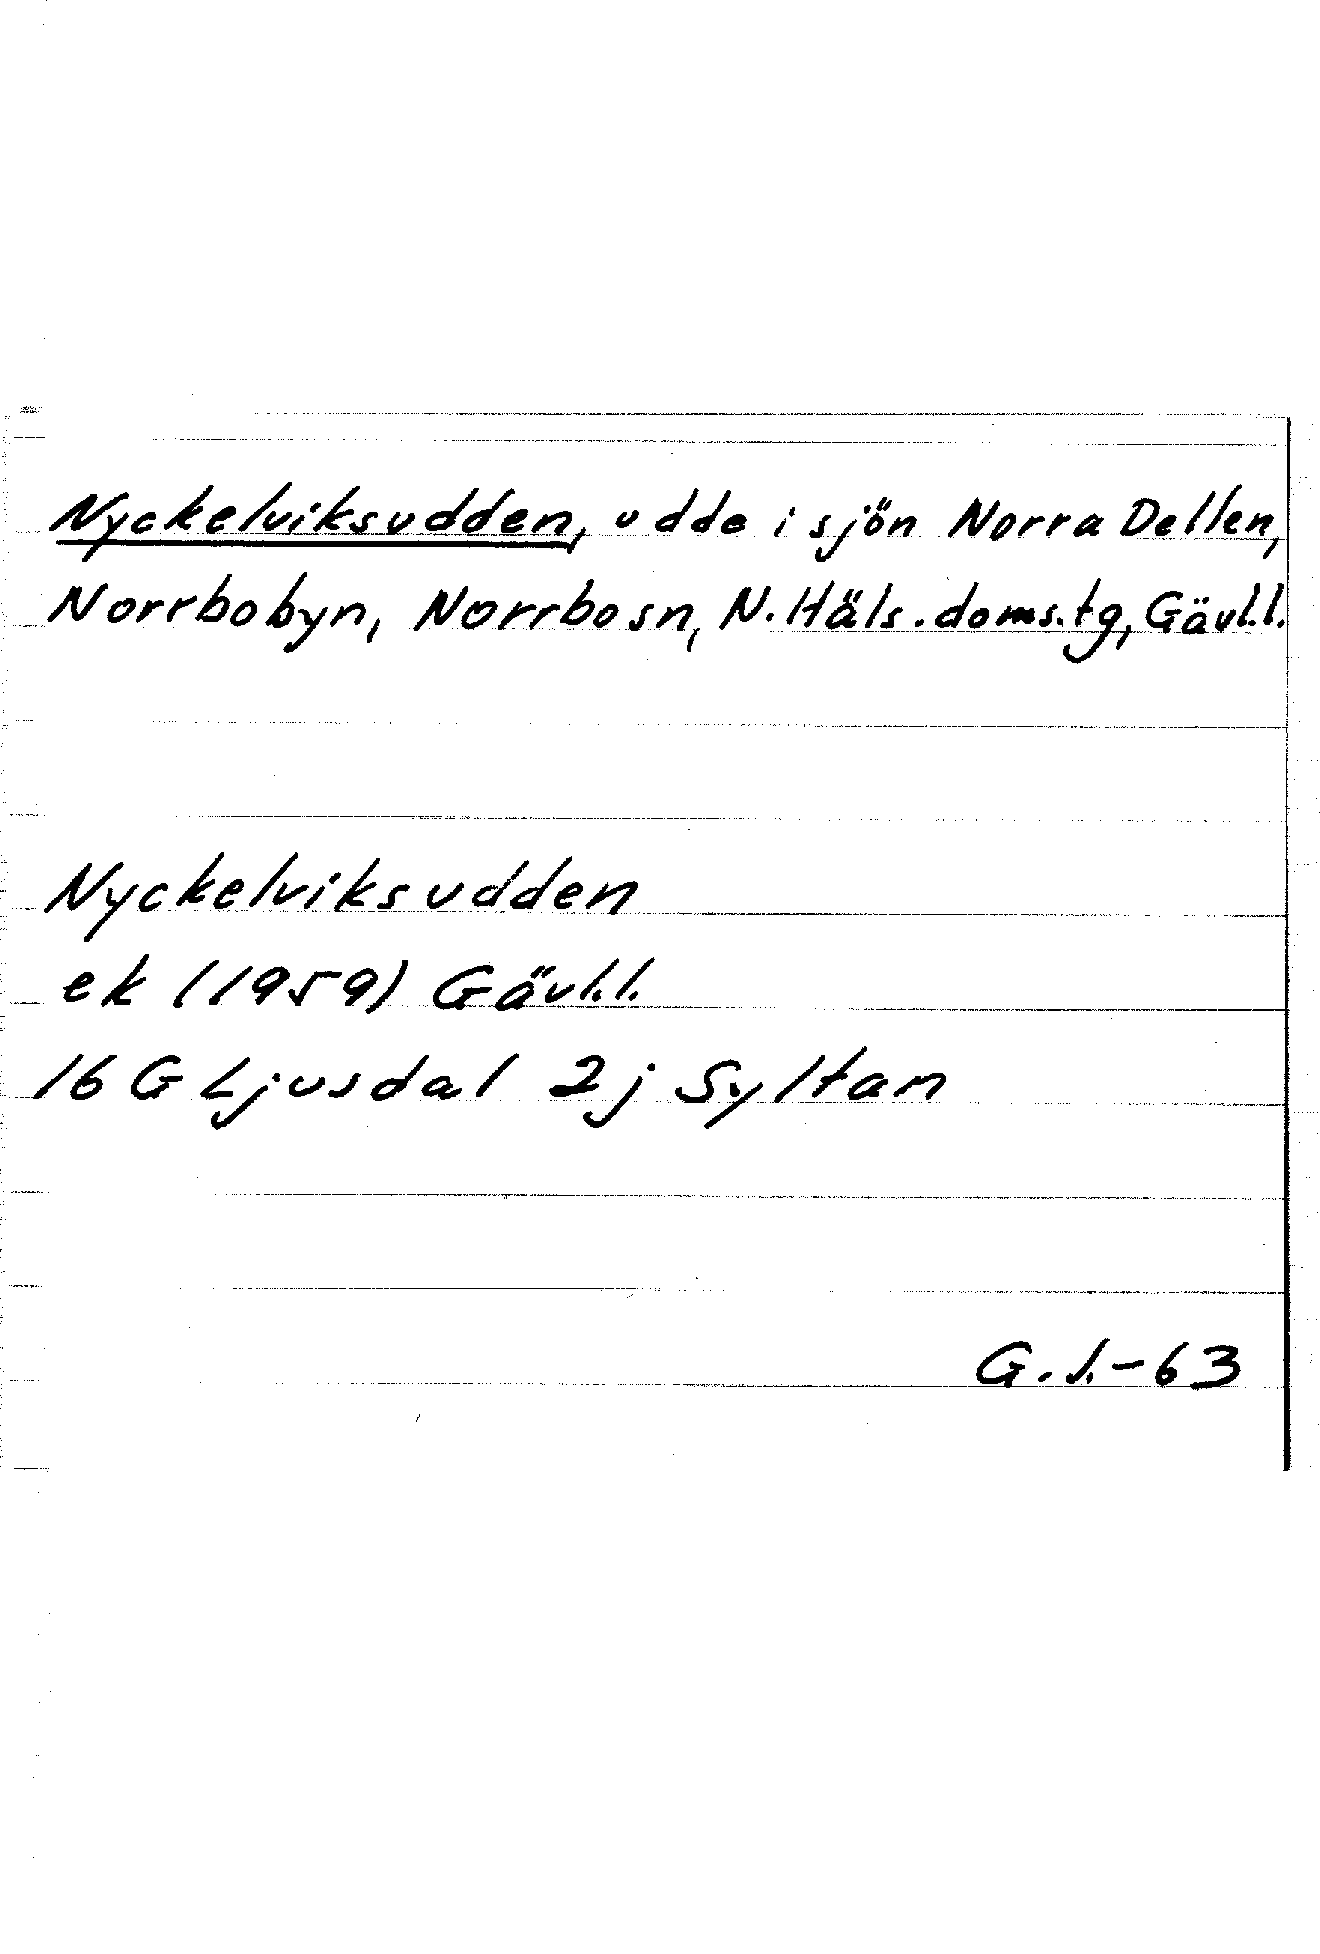 Nyckelviksudden, udde i sjön Norra Dellen,
Norrbobyn, Norrbo sn, N. Häls. doms.tg, Gävl.l.
Nyckelviksudden
ek (1959) Gävl.l.
16 G Ljusdal 2j Syltan
G.J.-63